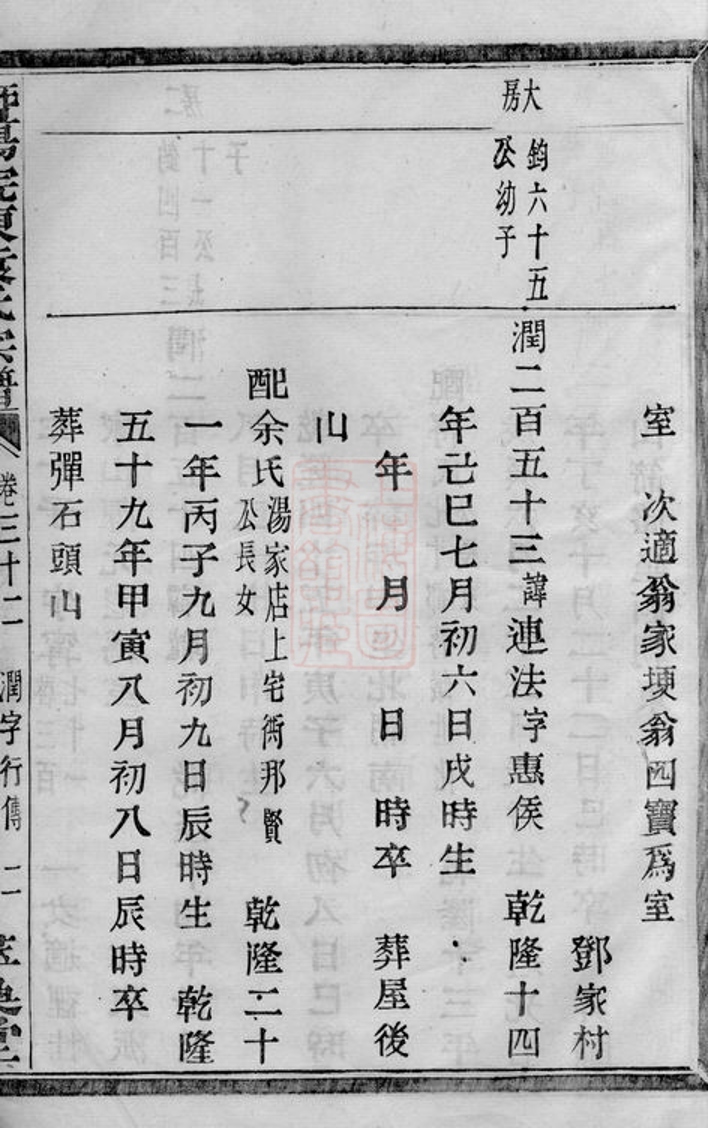 室　次適翁家埂翁四寶爲室
鄧家村
大房
鈞六十五公幼子
潤二百五十三諱連法字惠侯　乾隆十四
年己巳七月初六日戌時生
年　月　日　時卒　葬屋後
山
配余氏湯家店上宅衖那賢公長女　乾隆二十
一年丙子九月初九日辰時生　乾隆
五十九年甲寅八月初八日辰時卒
葬彈石頭山
宗譜　卷三十二　潤字行傳　二